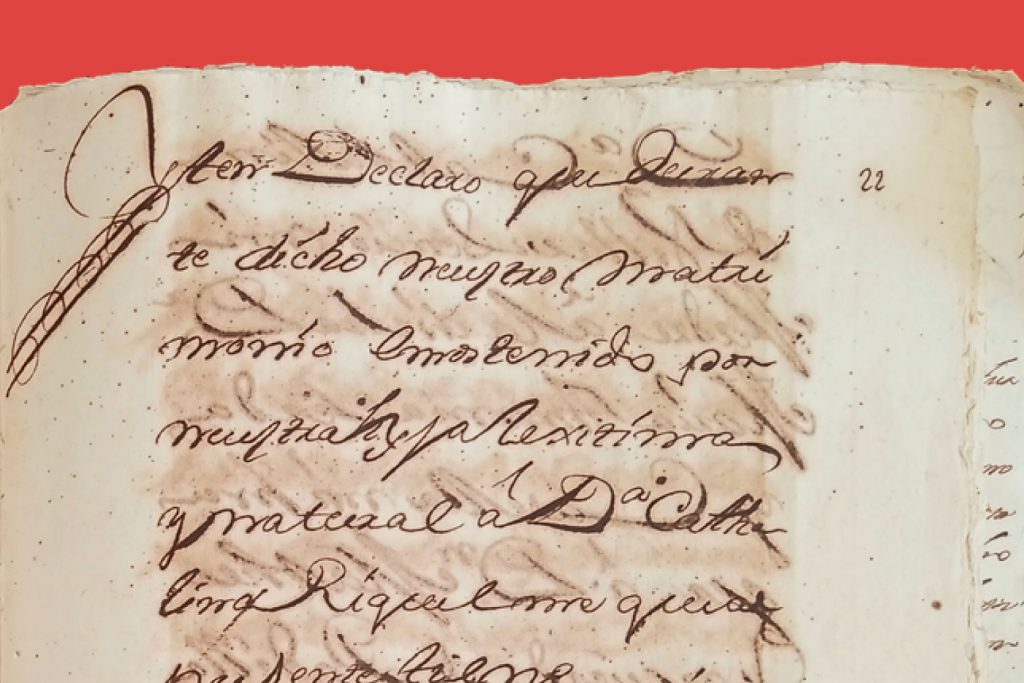 Iten Declaro que Duran 22
te dicho neustro Matri
monio emos tenido por
neustra hija Lexitima
y natural a Dª Catha
lina Riquelme que al